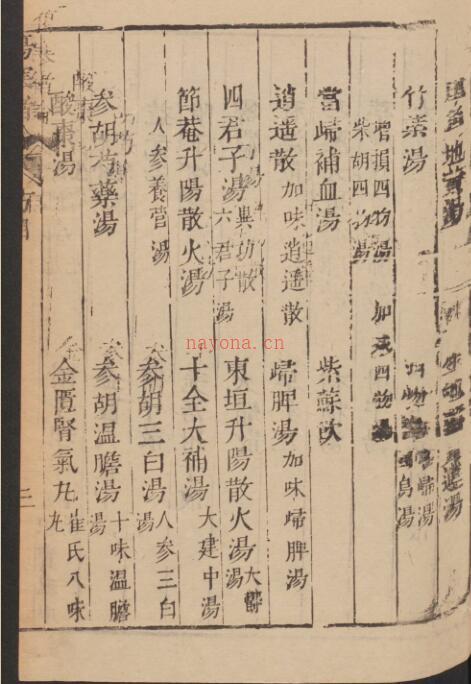 地黃湯
竹素湯
增損四物湯
柴胡四物湯 加减四物湯
當歸補血湯 紫蘇飲
逍遥散 加味逍遥散 歸脾湯 加味歸脾湯
四君子湯 異功散 六君子湯 東垣升陽散火湯
節菴升陽散火湯 十全大補湯 大建中湯
人參養營湯 參胡三白湯 人參三白湯
參胡芍藥湯 參胡温膽湯 十味温膽湯
酸棗湯 金匱腎氣丸 崔氏八味丸
三
nayona.cn